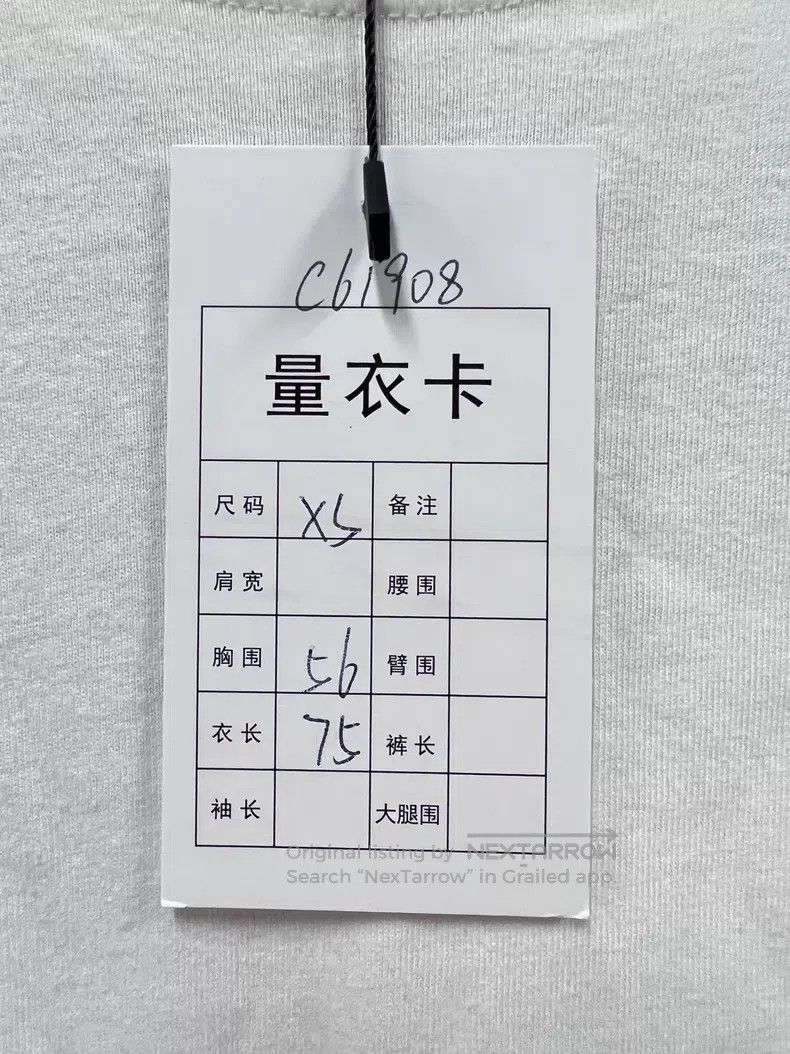 C61908
量衣卡
尺码 XS 备注
肩宽 腰围
胸围 56 臂围
衣长 75 裤长
袖长 大腿围
Original listing by NEXTARROW
Search “NexTarrow” in Grailed app.